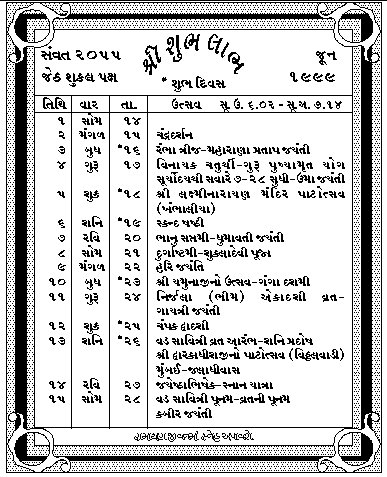 શ્રી શુભ લાભ
સંવત ૨૦૫૫ જૂન
જેઠ શુકલ પક્ષ * શુભ દિવસ ૧૯૯૯
તિથિ વાર તા. ઉત્સવ સૂ. ઉ. ૬.૦૨ - સૂ.અ. ૭.૧૪
૧ સોમ ૧૪
૨ મંગળ ૧૫ ચંદ્રદર્શન
૩ બુધ *૧૬ રંભા ત્રીજ-મહારાણા પ્રતાપ જયંતી
૪ ગુરૂ ૧૭ વિનાયક ચતુર્થી-ગુરૂ પુષ્યામૃત યોગ
સૂર્યોદયથી સવારે ૭-૨૮ સુધી-ઉમા જયંતી
૫ શુક્ર *૧૮ શ્રી લક્ષ્મીનારાયણ મંદિર પાટોત્સવ
(ખંભાલીયા)
૬ શનિ *૧૯ સ્કન્દ ષષ્ઠી
૭ રવિ ૨૦ ભાનુ સપ્તમી-ધુમાવતી જયંતી
૮ સોમ ૨૧ દુર્ગાષ્ટમી-શુકલાદેવી પૂજા
૯ મંગળ ૨૨ હરિ જયંતિ
૧૦ બુધ *૨૩ શ્રી યમુનાજીનો ઉત્સવ-ગંગા દશમી
૧૧ ગુરૂ ૨૪ નિર્જલા (ભીમ) એકાદશી વ્રત-
ગાયત્રી જયંતી
૧૨ શુક્ર *૨૫ ચંપક દ્વાદશી
૧૩ શનિ *૨૬ વડ સાવિત્રી વ્રત આરંભ-શનિ પ્રદોષ
શ્રી દ્વારકાધીશજીનો પાટોત્સવ (વિઠ્ઠલવાડી)
મુંબઈ-જલાધીવાસ
૧૪ રવિ ૨૭ જયેષ્ઠાભિષેક-સ્નાન યાત્રા
૧૫ સોમ ૨૮ વડ સાવિત્રી પૂનમ-વ્રતની પૂનમ
કબીર જયંતી